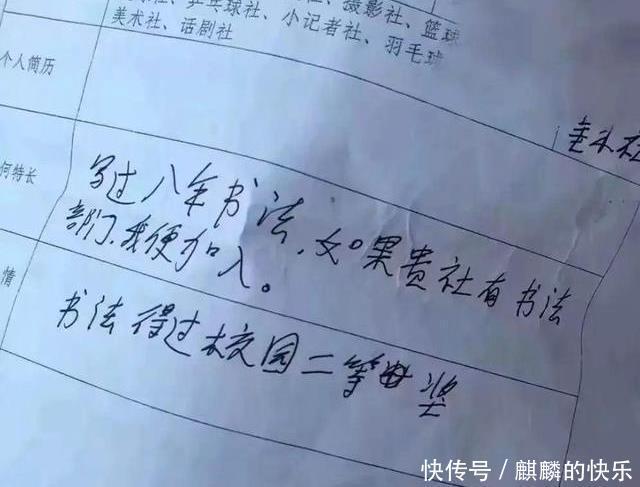 乒乓球社、小记者社、羽毛球
美术社、话剧社
摄影社、篮球
个人简历
何特长
写过八年书法,如果贵社有书法
部门,我便加入。
情
书法得过校园二等奖
快传号/麒麟的快乐